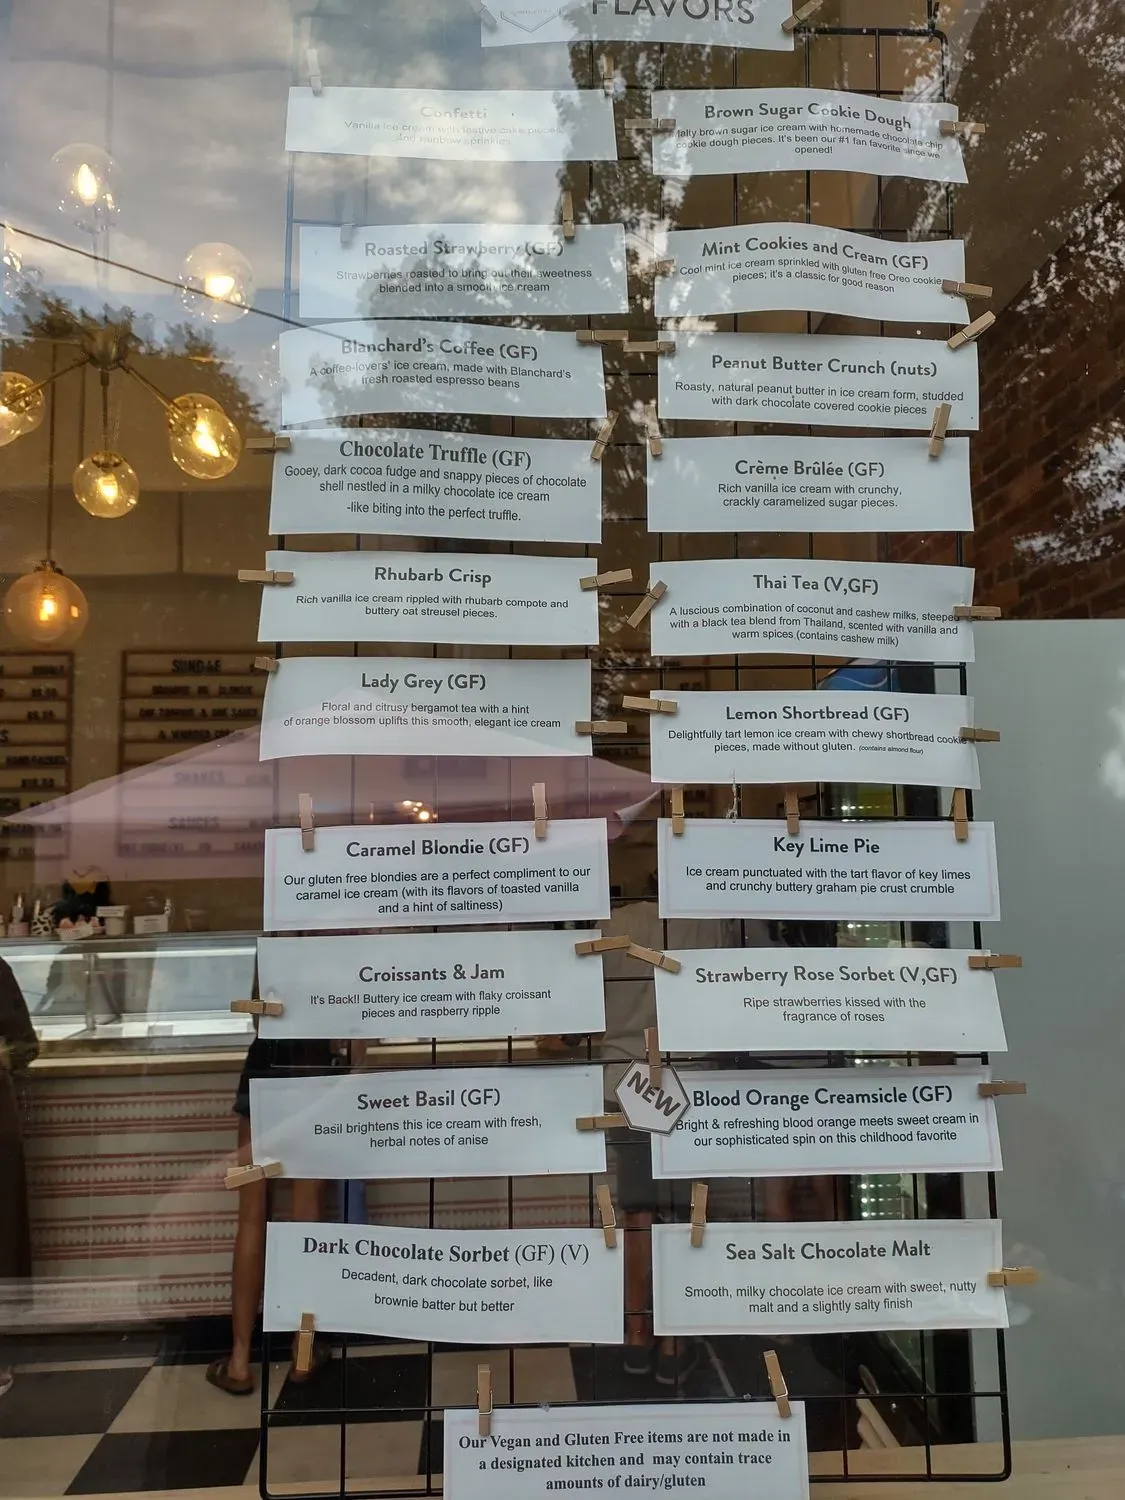 FLAVORS
Confetti
Vanilla ice cream with festive cake pieces
And rainbow sprinkles
Roasted Strawberry (GF)
Strawberries roasted to bring out their sweetness
blended into a smooth ice cream
Blanchard's Coffee (GF)
A coffee-lovers' ice cream, made with Blanchard's
fresh roasted espresso beans
Chocolate Truffle (GF)
Gooey, dark cocoa fudge and snappy pieces of chocolate
shell nestled in a milky chocolate ice cream
-like biting into the perfect truffle.
Rhubarb Crisp
Rich vanilla ice cream rippled with rhubarb compote and
buttery oat streusel pieces.
Lady Grey (GF)
Floral and citrusy bergamot tea with a hint
of orange blossom uplifts this smooth, elegant ice cream
Caramel Blondie (GF)
Our gluten free blondies are a perfect compliment to our
caramel ice cream (with its flavors of toasted vanilla
and a hint of saltiness)
Croissants & Jam
It's Back!! Buttery ice cream with flaky croissant
pieces and raspberry ripple
Sweet Basil (GF)
Basil brightens this ice cream with fresh,
herbal notes of anise
Dark Chocolate Sorbet (GF) (V)
Decadent, dark chocolate sorbet, like
brownie batter but better
Brown Sugar Cookie Dough
Malty brown sugar ice cream with homemade chocolate chip
cookie dough pieces. It's been our #1 fan favorite since we
opened!
Mint Cookies and Cream (GF)
Cool mint ice cream sprinkled with gluten free Oreo cookie
pieces; it's a classic for good reason
Peanut Butter Crunch (nuts)
Roasty, natural peanut butter in ice cream form, studded
with dark chocolate covered cookie pieces
Crème Brûlée (GF)
Rich vanilla ice cream with crunchy,
crackly caramelized sugar pieces.
Thai Tea (V,GF)
A luscious combination of coconut and cashew milks, steeped
with a black tea blend from Thailand, scented with vanilla and
warm spices (contains cashew milk)
Lemon Shortbread (GF)
Delightfully tart lemon ice cream with chewy shortbread cookie
pieces, made without gluten. (contains almond flour)
Key Lime Pie
Ice cream punctuated with the tart flavor of key limes
and crunchy buttery graham pie crust crumble
Strawberry Rose Sorbet (V,GF)
Ripe strawberries kissed with the
fragrance of roses
NEW
Blood Orange Creamsicle (GF)
Bright & refreshing blood orange meets sweet cream in
our sophisticated spin on this childhood favorite
Sea Salt Chocolate Malt
Smooth, milky chocolate ice cream with sweet, nutty
malt and a slightly salty finish
Our Vegan and Gluten Free items are not made in
a designated kitchen and may contain trace
amounts of dairy/gluten
SUNDAE
SHAKES
SAUCES